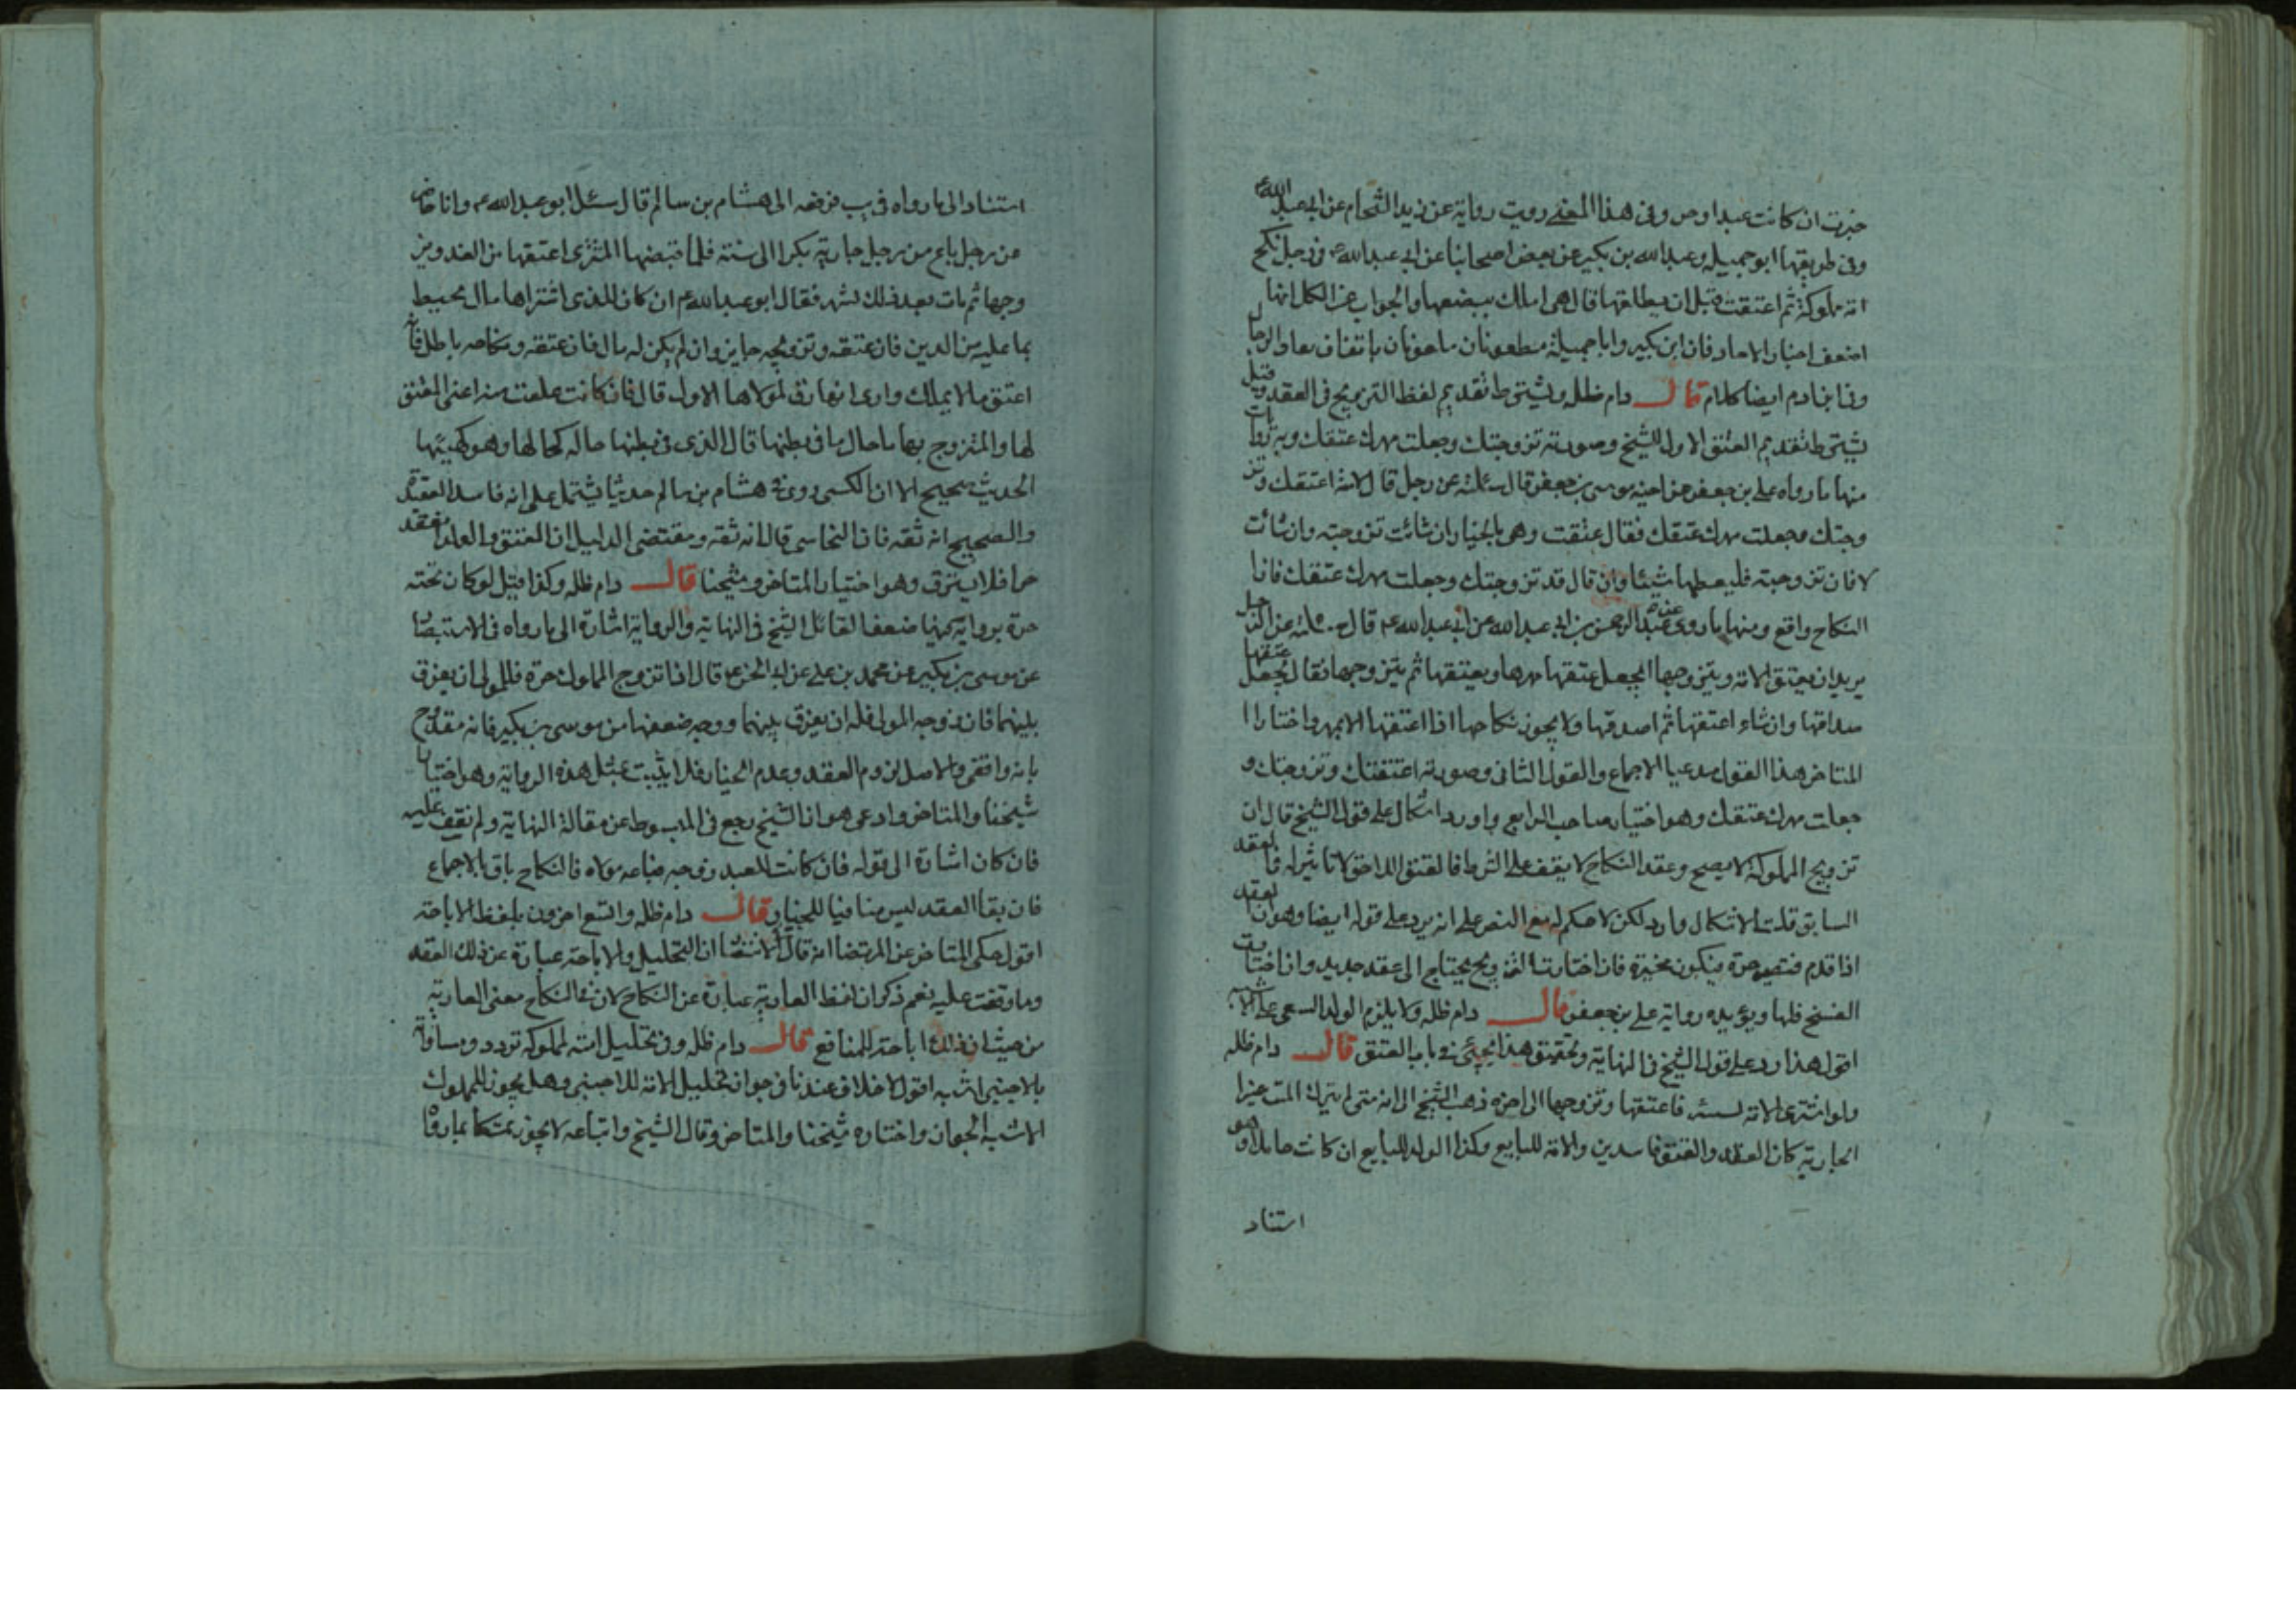 خيرت ان كانت عبدا وحر وفى هذا المعنى رويت رواية عن زيد الشحام عن ابى عبد الله ع
وفى طريقها ابو جميله وعبد الله بن بكير عن بعض اصحابنا عن ابى عبد الله ع فى رجل نكح
امة مملوكة ثم اعتقت قبل ان يطلقها قال هى املك ببضعها والجواب عن الكل انها
اضعف اخبار الاحاد فان ابن بكير وابا جميلة مطعونان باتفاق
وفى ايضا كلام قال دام ظله ويشترط تقديم لفظ التزويج فى العقد وقيل
يشترط تقديم العتق الاول للشيخ وصورته تزوجتك وجعلت مهرك عتقك وبه روايات
منها ما رواه على بن جعفر عن اخيه موسى بن جعفر قال سئلته عن رجل قال لامته اعتقك وتز
وجتك وجعلت مهرك عتقك فقال عتقت وهى بالخيار ان شائت تزوجته وان شائت
لا فان تزوجته فليعطها شيئا وان قال قد تزوجتك وجعلت مهرك عتقك فان
النكاح واقع ومنها ما روى عبد الرحمن بن ابى عبد الله عن ابى عبد الله ع قال سئلته عن الرجل
يريد ان يعتق الامة ويتزوجها ايجعل عتقها مهرها او يعتقها ثم يتزوجها فقال يجعل عتقها
صداقها وان شاء اعتقها ثم اصدقها ولا يجوز نكاحها اذا اعتقها الا بمهر واختار
المتاخر هذا القول مدعيا الاجماع والقول الثانى وصورته اعتقتك وتزوجتك و
جعلت مهرك عتقك وهو اختيار صاحب الرابع واورد اشكال على قول الشيخ قال ان
تزويج المملوكة لا يصح وعقد النكاح لا يقف على الشرط فالعتق اللاحق لا تاثير له فى العقد
السابق قلت الاشكال وارد لكن لا حكم له مع النص على انه يرد على قوله ايضا وهو ان العقد
اذا قدم فتصير حرة فيكون مخيرة فان اختارت التزويج يحتاج الى عقد جديد وان اختارت
الفسخ فلها ويؤيده رواية على بن جعفر قال دام ظله ولا يلزم الولد السعى على
اقول هذا رد على قول الشيخ فى النهاية وتحقيق هذا يجئى فى باب العتق قال دام ظله
ولو اشترى الامة فاعتقها وتزوجها الى اخره ذهب الشيخ الى انه متى لم يترك الميت غير
الجارية كان العقد والعتق فاسدين والامة للبايع وكذا الولد للبايع ان كانت حاملا وهو
استناد
استناد الى ما رواه فى يب الى هشام بن سالم قال سئل ابو عبد الله ع وانا حاضر
عن رجل باع من رجل جارية بكرا الى سنة فلما قبضها المشترى اعتقها من الغد وتز
وجها ثم مات بعد ذلك بشهر فقال ابو عبد الله ع ان كان للذى اشتراها مال محيط
بما عليه من الدين فان عتقه وتزويجه جايز وان لم يكن له مال فان عتقه ونكاحه باطل
اعتق ما لا يملك وارى انها رق لمولاها الاول قال فان كانت علقت من المعتق
لها والمتزوج بها ما حال ما فى بطنها قال الذى فى بطنها حاله كحالها وهو كهيئتها
الحديث صحيح الا ان الكشى روى فى هشام بن سالم حديثا يشتمل على انه فاسد العقيدة
والصحيح انه ثقه فان النجاشى قال انه ثقه ومقتضى الدليل ان العتق والعقد
حرا فلا يسترق وهو اختيار المتاخر وشيخنا قال دام ظله وكذا قيل لو كان تحته
حرة برواية ضعفا القائل الشيخ فى النهاية والرواية اشارة الى ما رواه فى الاستبصار
عن موسى بن بكير عن محمد بن على عن ابى الحسن ع قال اذا تزوج المملوك حرة فللمولى ان يفرق
بينهما فان زوجه المولى فله ان يفرق بينهما ووجه ضعفها من موسى بن بكير فانه مقدوح
بانه واقفى والاصل لزوم العقد وعدم الخيار فلا يثبت بمثل هذه الرواية وهو اختيار
شيخنا والمتاخر وادعى هو ان الشيخ رجع فى المبسوط عن مقالة النهاية ولم نقف عليه
فان كان اشارة الى قوله فان كانت للعبد زوجه فباعه مولاه فالنكاح باق بالاجماع
فان بقا العقد ليس منافيا للخيار قال دام ظله واتسع اخرون بلفظ الاباحة
اقول حكى المتاخر عن المرتضى انه قال ان التحليل والاباحة عبارة عن ذلك العقد
وما وقفت عليه نعم ذكر ان لفظ العارية عبارة عن النكاح لان فى النكاح معنى العارية
من حيث ان ذلك اباحة للمنافع قال دام ظله وفى تحليل امته لمملوكه تردد ومساواته
بالاجنبى اشبه اقول لا خلاف عندنا فى جواز تحليل الامة للاجنبى وهل يجوز للمملوك
الاشبه الجواز واختاره شيخنا والمتاخر وقال الشيخ واتباعه لا يجوز تمسكا بما رواه